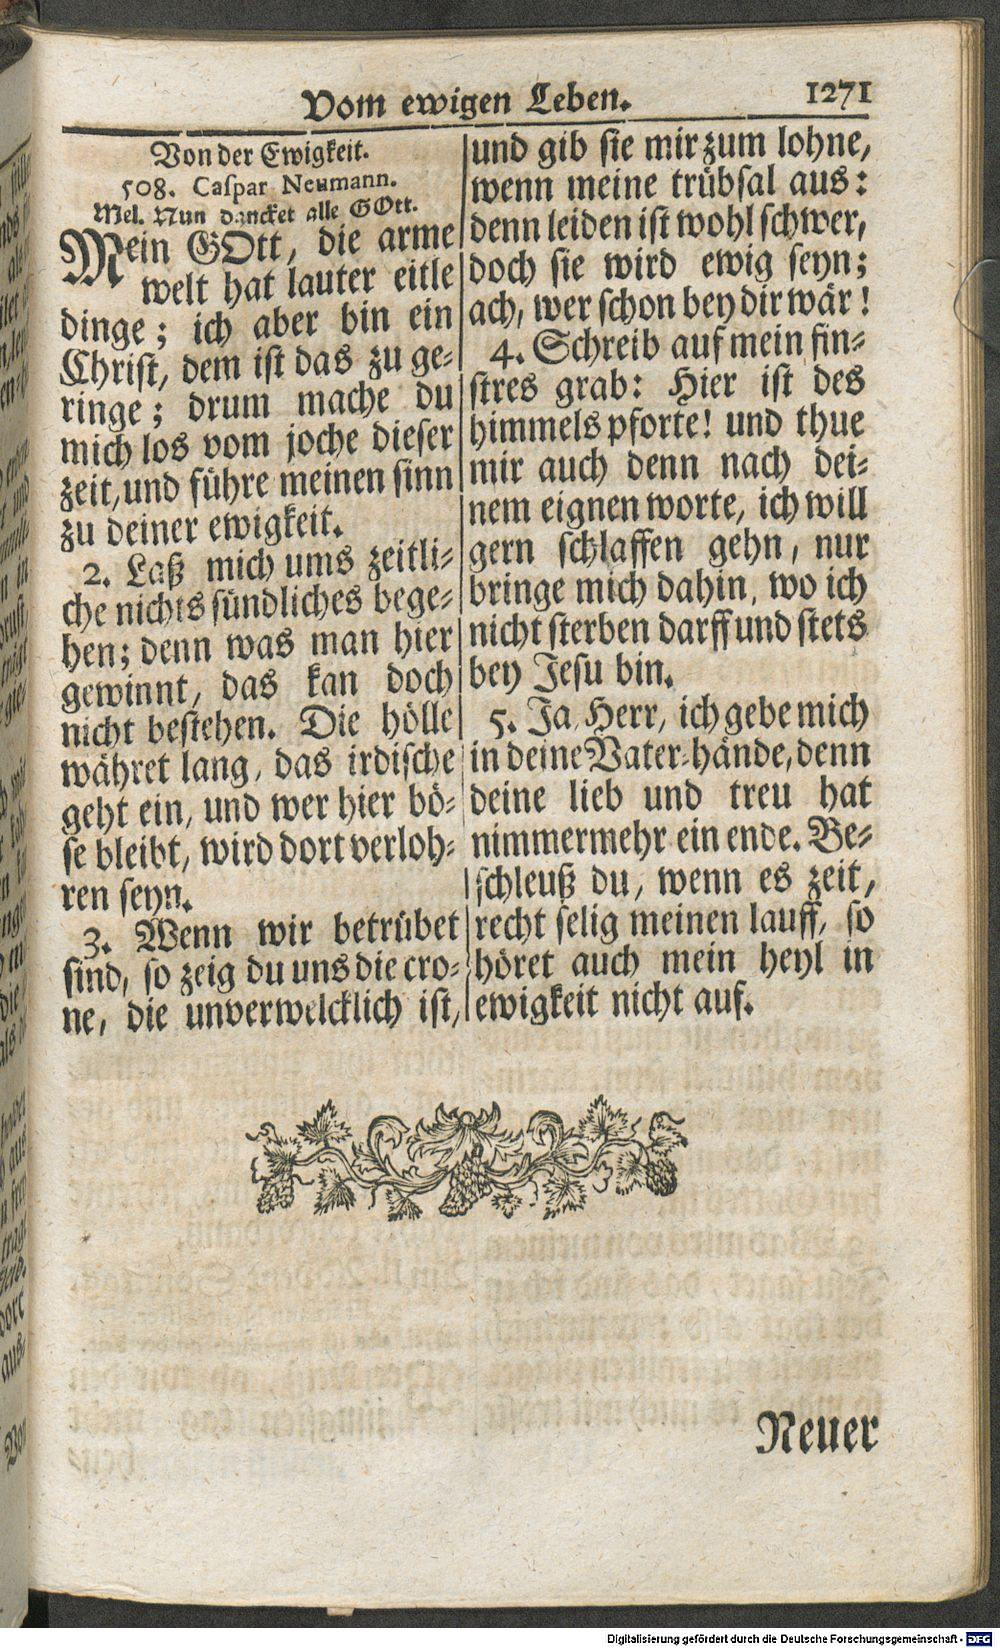 Vom ewigen Leben. 1271
Von der Ewigkeit.
508. Caspar Neumann.
Mel. Nun dancket alle GOtt.
Mein GOtt, die arme
welt hat lauter eitle
dinge; ich aber bin ein
Christ, dem ist das zu ge-
ringe; drum mache du
mich los vom joche dieser
zeit, und führe meinen sinn
zu deiner ewigkeit.
2. Laß mich ums zeitli-
che nichts sündliches bege-
hen; denn was man hier
gewinnt, das kan doch
nicht bestehen. Die hölle
währet lang, das irdische
geht ein, und wer hier bö-
se bleibt, wird dort verloh-
ren seyn.
3. Wenn wir betrübet
sind, so zeig du uns die cro-
ne, die unverwelcklich ist,
und gib sie mir zum lohne,
wenn meine trübsal aus:
denn leiden ist wohl schwer,
doch sie wird ewig seyn;
ach, wer schon bey dir wär!
4. Schreib auf mein fin-
stres grab: Hier ist des
himmels pforte! und thue
mir auch denn nach dei-
nem eignen worte, ich will
gern schlaffen gehn, nur
bringe mich dahin, wo ich
nicht sterben darff und stets
bey Jesu bin.
5. Ja, Herr, ich gebe mich
in deine Vater-hände, denn
deine lieb und treu hat
nimmermehr ein ende. Be-
schleuß du, wenn es zeit,
recht selig meinen lauff, so
höret auch mein heyl in
ewigkeit nicht auf.
Neuer
Digitalisierung gefördert durch die Deutsche Forschungsgemeinschaft - DFG